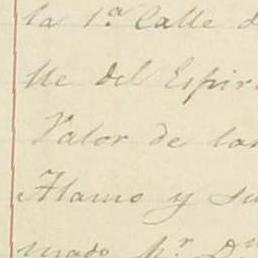 la 1.ª Calle d
lle del Espir
Valor de la
Alamo y su
mado pr. Dn